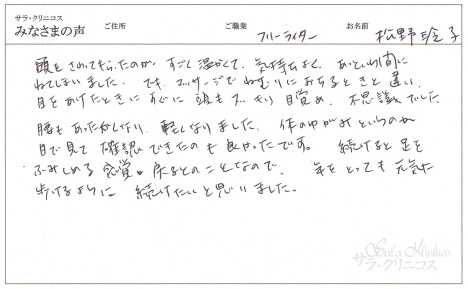 サラ・クリニコス
みなさまの声
ご住所
ご職業
フリーライター
お名前
松野玲子
頭をさわってもらったのが、すごく温かくて、気持ちよく、あっという間に
ねてしまいました。でも、マッサージでねむりにおちるときと違い、
目をあけたときにすぐに頭もスッキリ目覚め、不思議でした。
腰もあったかくなり、軽くなりました。体のゆがみというのか
目で見て確認できたのも良かったです。続けると足を
ふみしめる感覚。とのことなので、年をとっても元気に
歩けるように続けたいと思いました。
Sala Klinikos
サラ・クリニコス